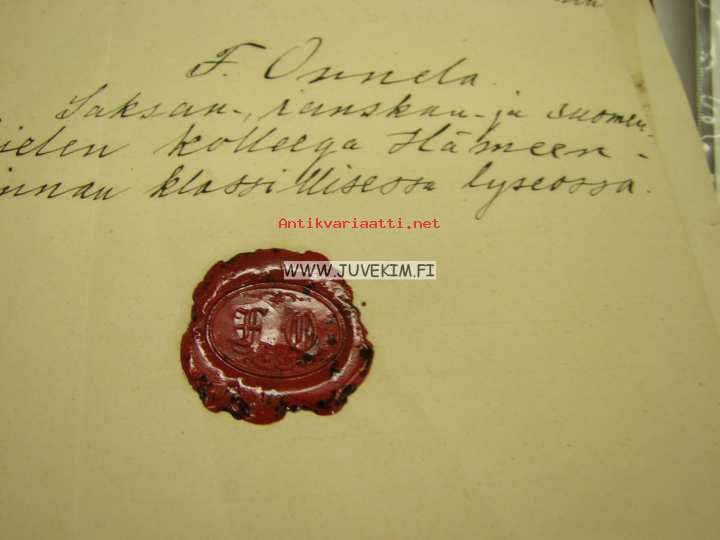 F. Onnela.
Saksan-, ranskan- ja suomen-
ielen kolleega Hämeen-
innan klassillisessa lyseossa.
Antikvariaatti.net
WWW.JUVEKIM.FI
F O